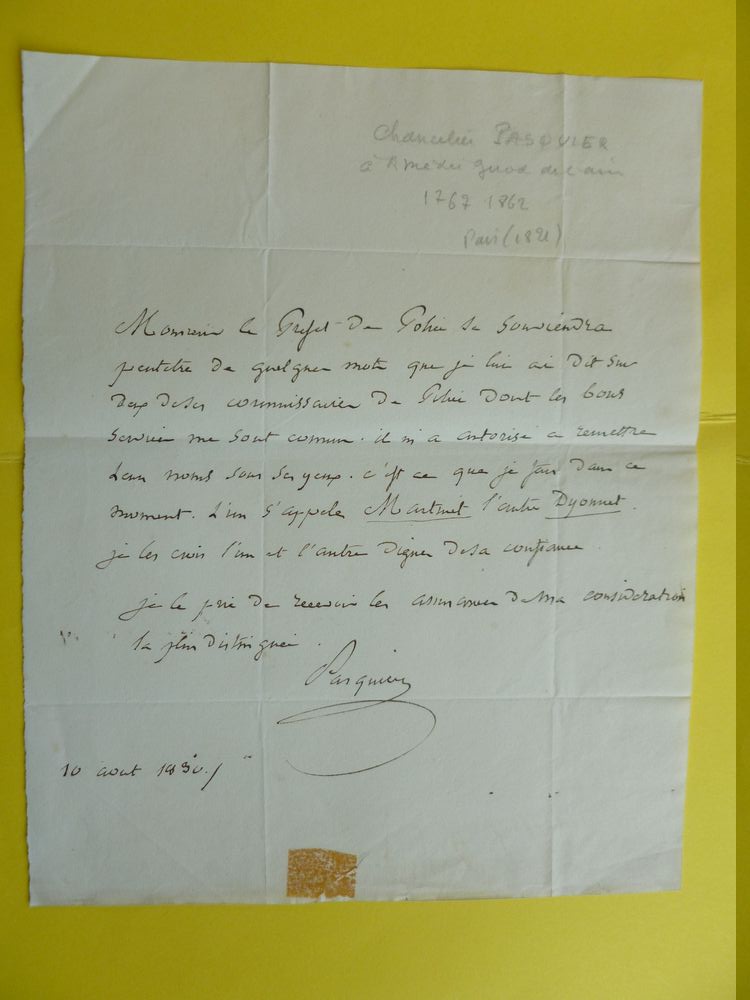 Chancelier PASQUIER
à Amédée Girod de l'ain
1767 1862
Paris (1821)
Monsieur le Prefet De Police se Souviendra
peutetre De quelques mots que je lui ai Dit Sur
Deux de ses commissaires De Police Dont les bons
Services me Sont connus. il m'a autorisé a remettre
Leurs noms Sous Ses yeux. c'est ce que je fais Dans ce
moment. L'un S'appele Martinet l'autre Dyonnet.
je les crois l'un et l'autre Dignes De sa confiance.
je le prie De recevoir les assurances De Ma consideration
la plus Distinguée.
Pasquier
10 aout 1830